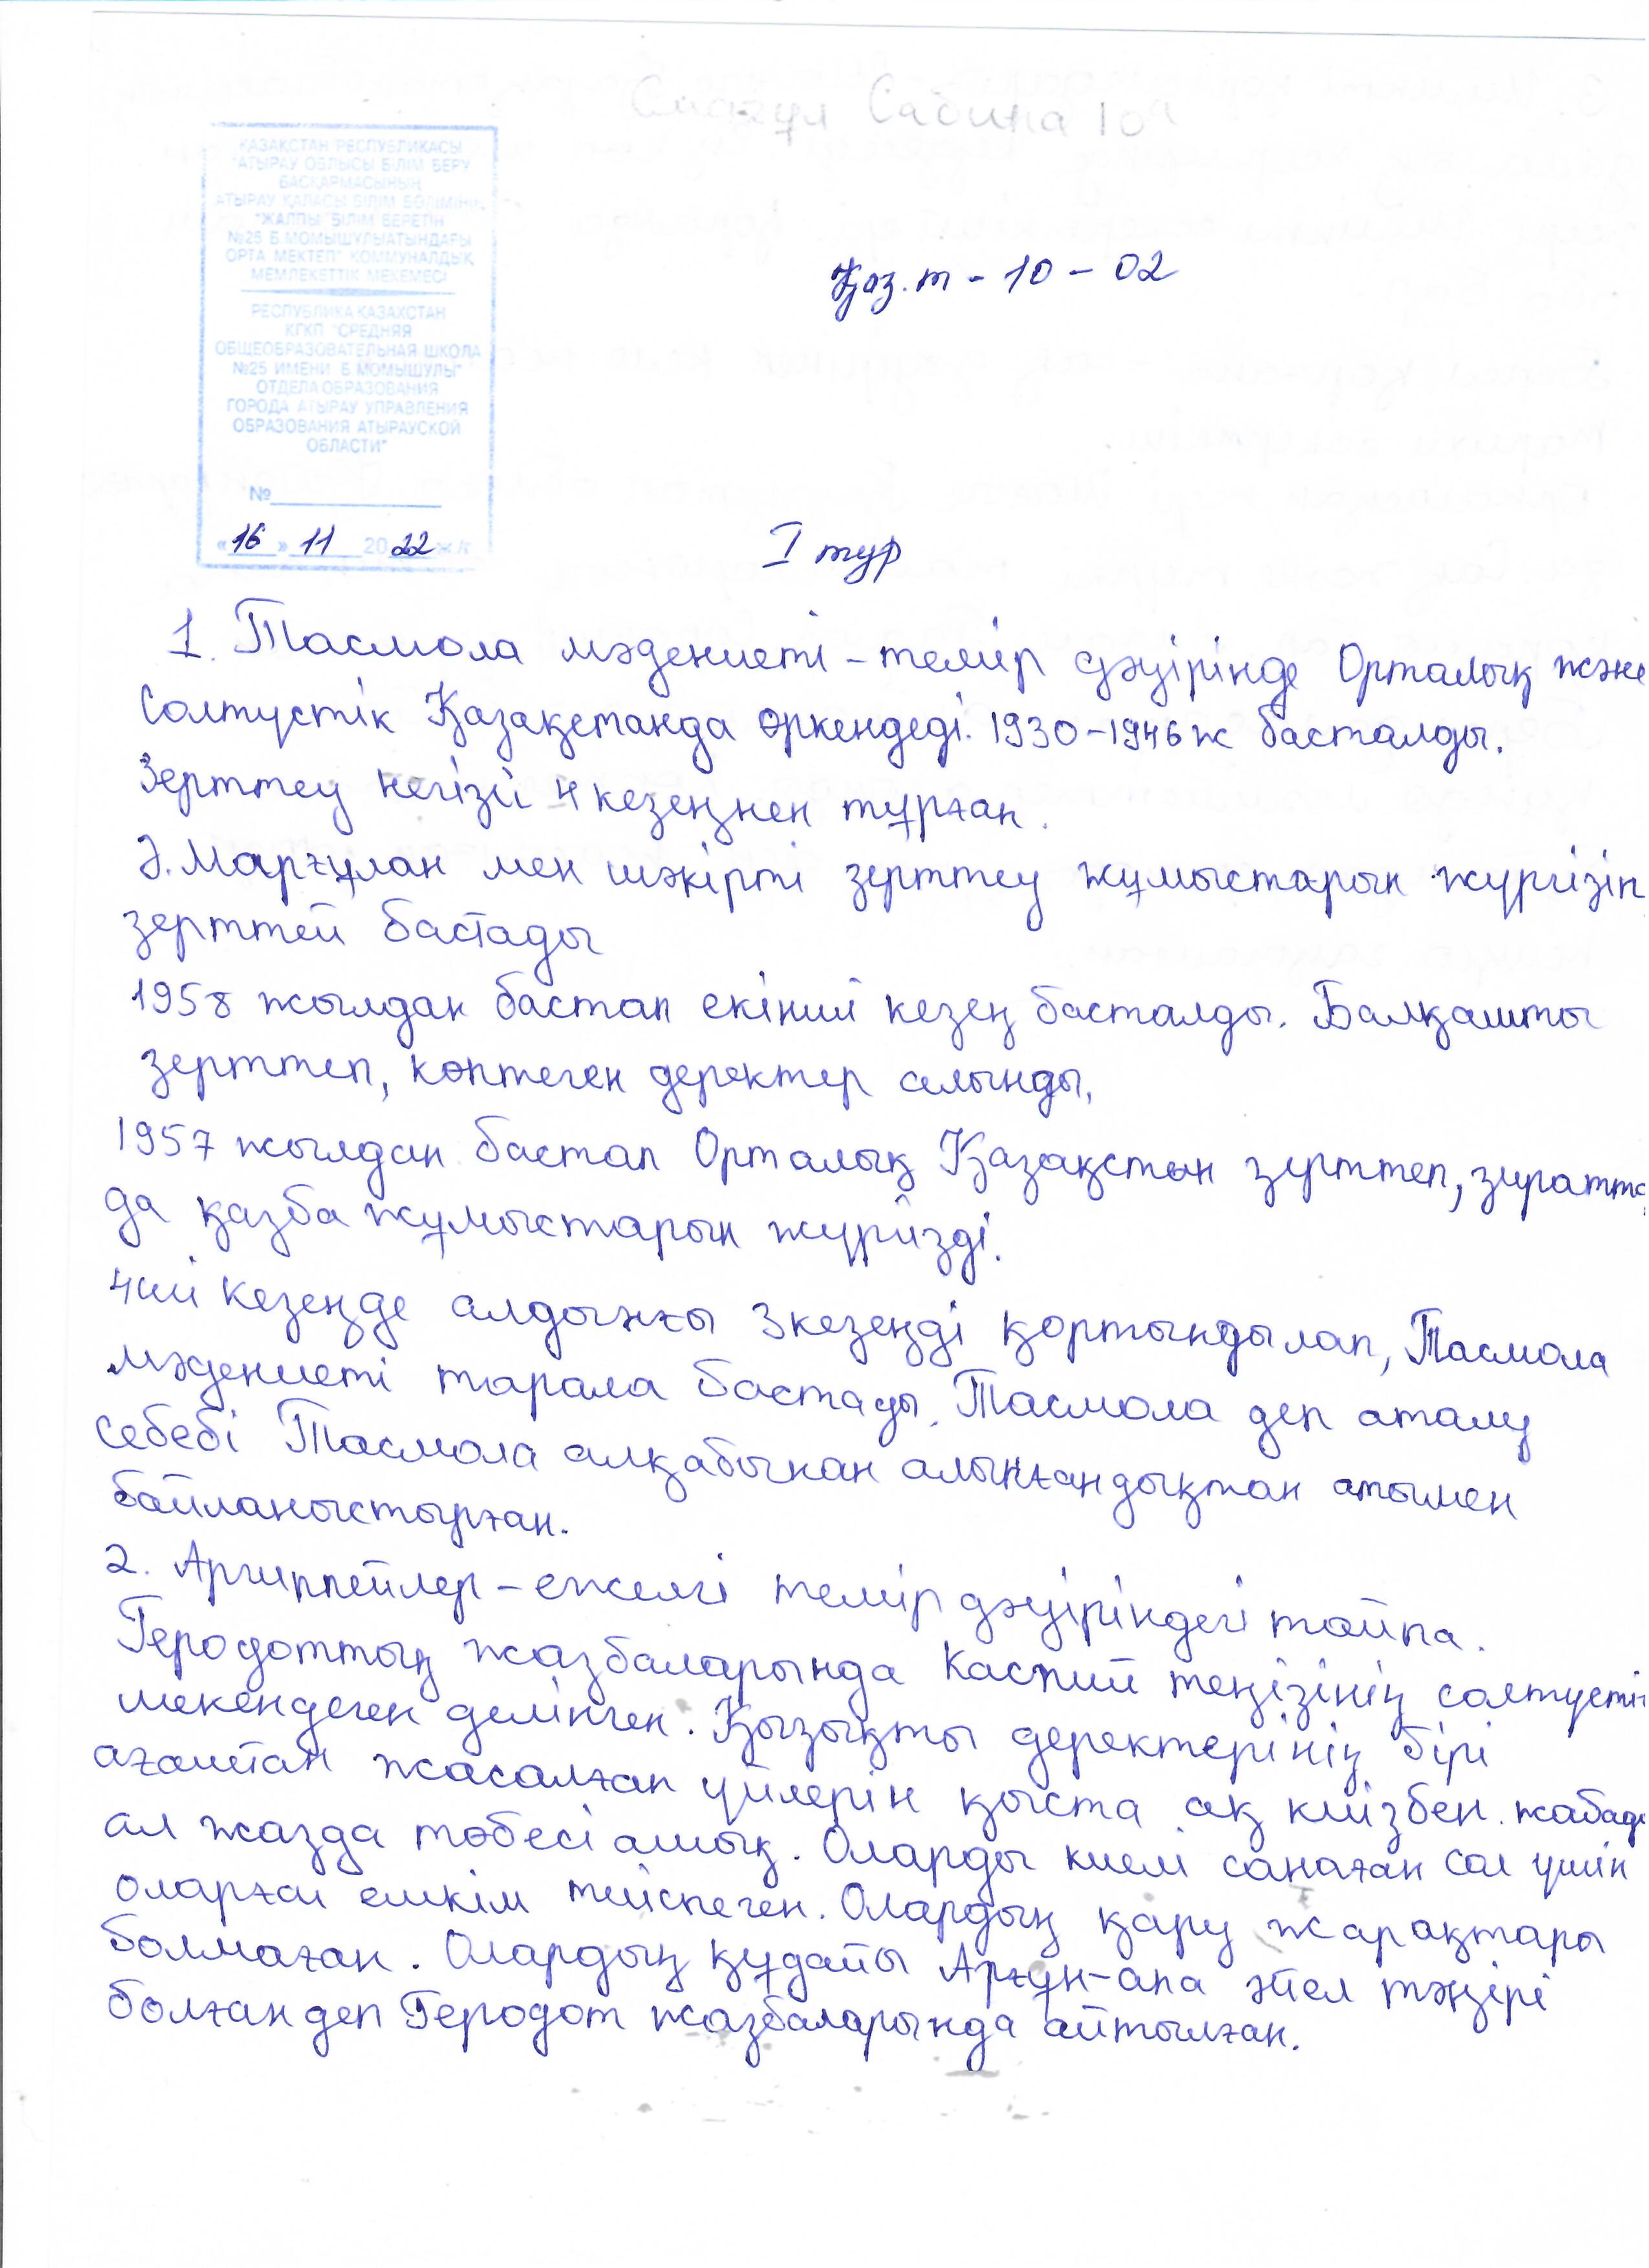 Сабина 10а
ҚАЗАҚСТАН РЕСПУБЛИКАСЫ
АТЫРАУ ОБЛЫСЫ БІЛІМ БЕРУ
БАСҚАРМАСЫНЫҢ
АТЫРАУ ҚАЛАСЫ БІЛІМ БӨЛІМІНІҢ
"ЖАЛПЫ БІЛІМ БЕРЕТІН
№25 Б.МОМЫШҰЛЫАТЫНДАҒЫ
ОРТА МЕКТЕП" КОММУНАЛДЫҚ
МЕМЛЕКЕТТІК МЕКЕМЕСІ
РЕСПУБЛИКА КАЗАХСТАН
КГКП "СРЕДНЯЯ
ОБЩЕОБРАЗОВАТЕЛЬНАЯ ШКОЛА
№25 ИМЕНИ Б.МОМЫШУЛЫ"
ОТДЕЛА ОБРАЗОВАНИЯ
ГОРОДА АТЫРАУ УПРАВЛЕНИЯ
ОБРАЗОВАНИЯ АТЫРАУСКОЙ
ОБЛАСТИ"
№
«16» 11 2022 ж/г
Қаз.т - 10 - 02
I тур
1. Тасмола мәдениеті - темір дәуірінде Орталық және
Солтүстік Қазақстанда өркендеді. 1930-1946ж басталды.
Зерттеу негізі 4 кезеңнен тұрған.
Ә.Марғұлан мен шәкірті зерттеу жұмыстарын жүргізіп,
зерттей бастады
1958 жылдан бастап екінші кезең басталды. Балқашты
зерттеп, көптеген деректер алынды,
1957 жылдан бастап Орталық Қазақстын зерттеп, зиратта
да қазба жұмыстарын жүргізді.
4ші кезеңде алдынғы 3кезеңді қортындылап, Тасмола
мәдениеті тарала бастады. Тасмола деп аталу
себебі Тасмола алқабынан алынғандықтан атымен
байланыстырған.
2. Аргиппейлер - ежелгі темір дәуіріндегі тайпа.
Геродоттың жазбаларында Каспий теңізінің солтүстік
мекендеген делінген. Қызықты деректерінің бірі
ағаштан жасалған үйлерін қыста ақ киізбен жабады
ал жазда төбесі ашық. Оларды киелі санаған сол үшін
оларға ешкім тиіспеген. Олардың қару жарақтары
болмаған. Олардың құдайы Арғұн-апа әйел тәңірі
болған деп Геродот жазбаларында айтылған.